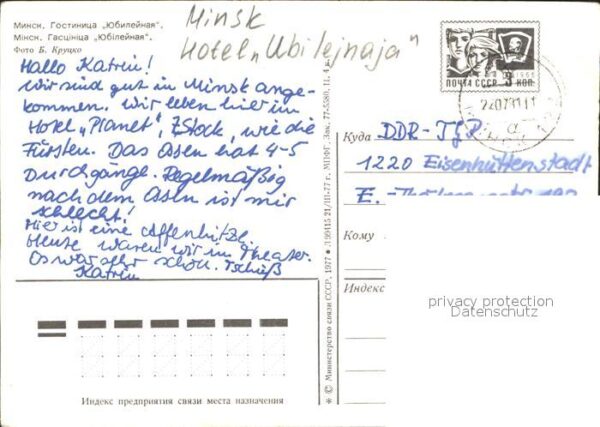 Минск. Гостиница „Юбилейная“.
Мінск. Гасцініца „Юбілейная“.
Фото Б. Круцко
Minsk
Hotel „Ubilejnaja“
Hallo Katrin!
Wir sind gut in Minsk ange-
kommen. Wir leben hier im
Hotel „Planet“, 7Stock, wie die
Fürsten. Das Essen hat 4-5
Durchgänge. Regelmäßig
nach dem Essen ist mir
schlecht!
Hier ist eine Affenhitze.
Heute waren wir im Theater.
Es war sehr schön. Tschüß
Katrin
1966
ПОЧТА СССР 3 КОП.
Куда DDR-
1220 Eisenhüttenstadt
E.
Кому
Индекс
privacy protection
Datenschutz
Индекс предприятия связи места назначения
* © Министерство связи СССР, 1977 * 21/III-77 г. МПФГ. Зак. 77-5580, П. 4 к.